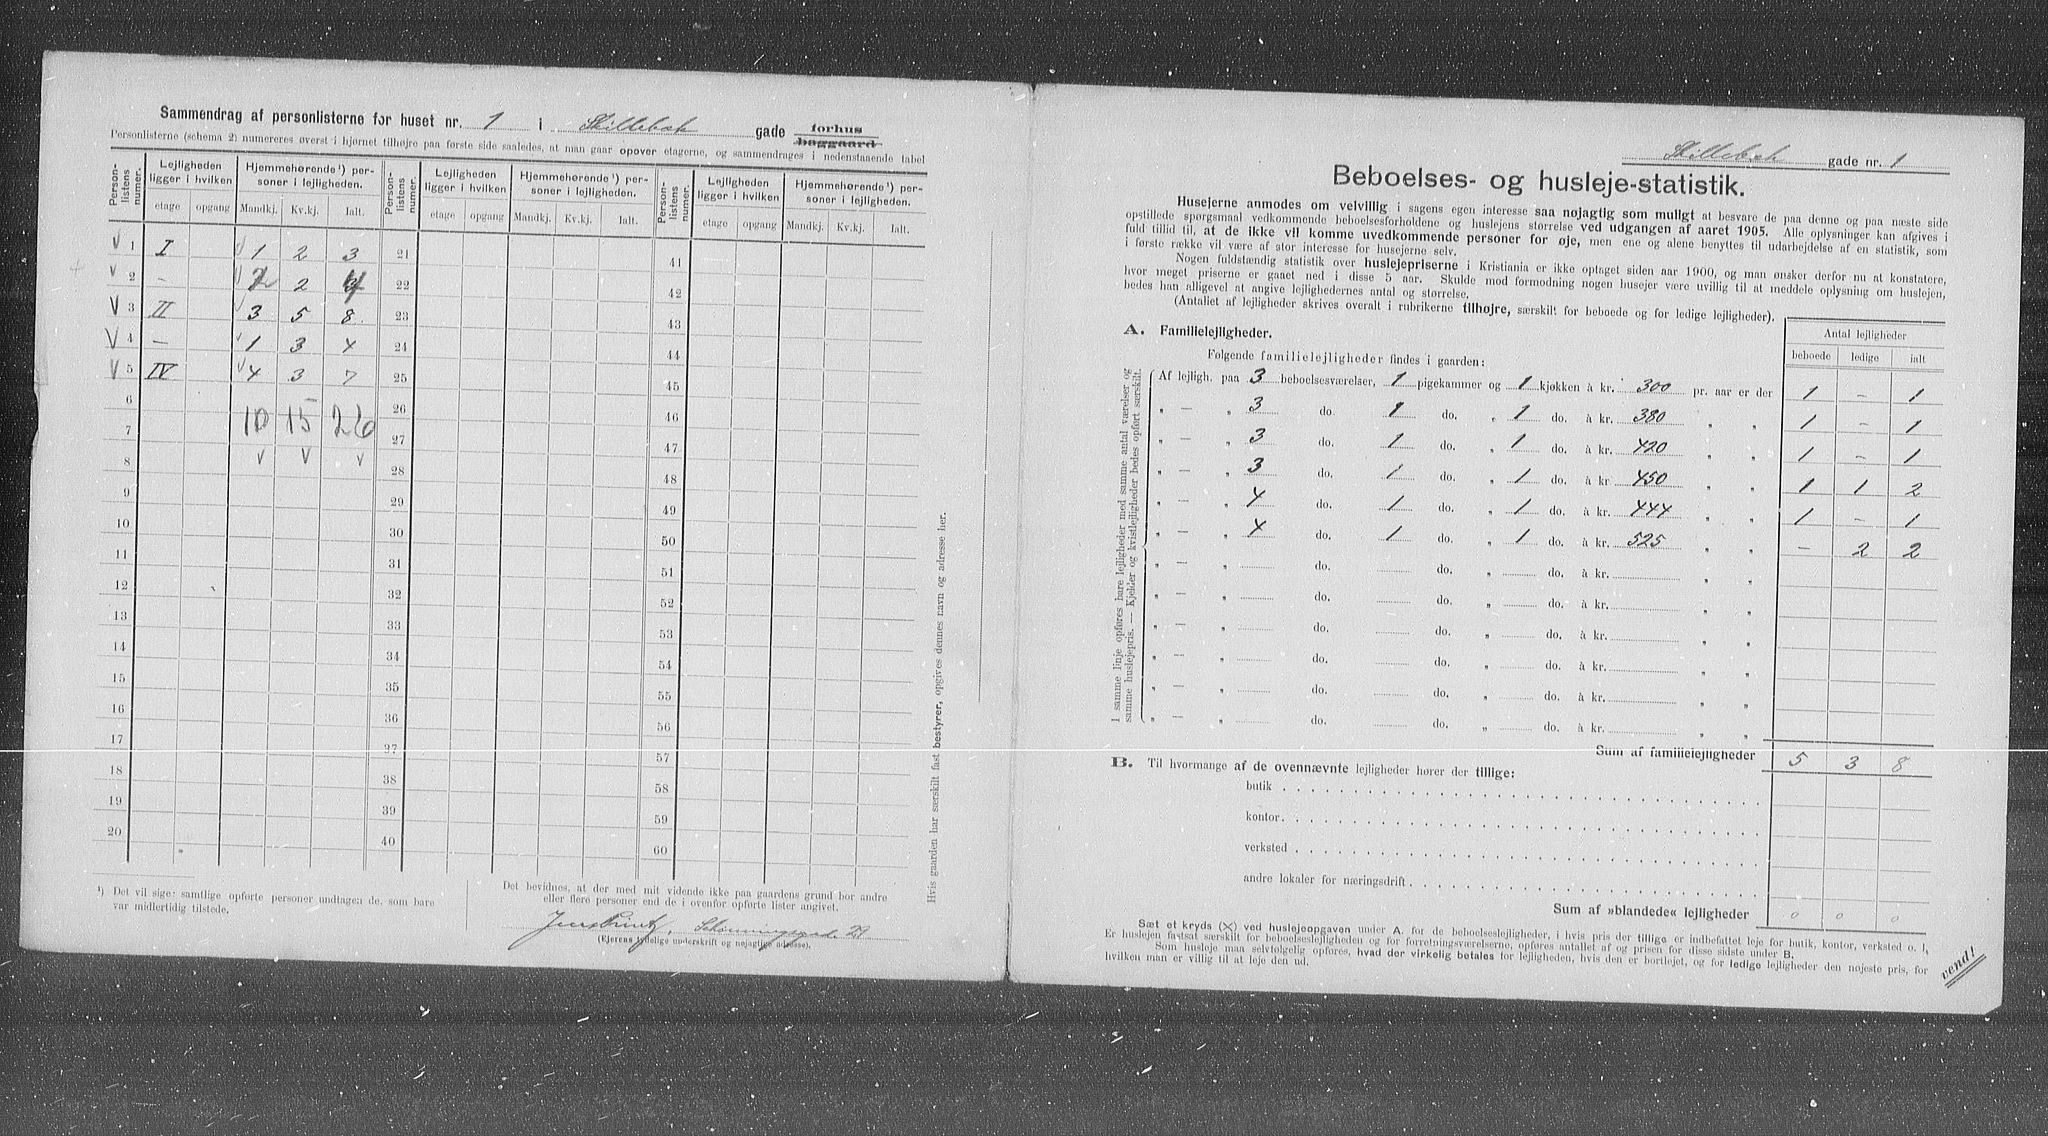 Sammendrag af personlisterne for huset nr. 1 i Skillebæk gade forhus baggaard
Personlisterne (schema 2) numereres øverst i hjørnet tilhøjre paa første side saaledes, at man gaar opover etagerne, og sammendrages i nedenstaaende tabel
Person-listens numer. Lejligheden ligger i hvilken Hjemmehørende¹) personer i lejligheden. Person-listens numer. Lejligheden ligger i hvilken Hjemmehørende¹) personer i lejligheden. Person-listens numer. Lejligheden ligger i hvilken Hjemmehørende¹) personer i lejligheden.
etage opgang Mandkj. Kv.kj. Ialt. etage opgang Mandkj. Kv.kj. Ialt. etage opgang Mandkj. Kv.kj. Ialt.
V 1 I V 1 2 3 21 41
V 2 – V 2 2 4 22 42
V 3 II V 3 5 8 23 43
V 4 – V 1 3 4 24 44
V 5 IV V 4 3 7 25 45
6 10 15 26 26 46
7 27 47
8 V V V 28 48
9 29 49
10 30 50
11 31 51
12 32 52
13 33 53
14 34 54
15 35 55
16 36 56
17 37 57
18 38 58
19 39 59
20 40 60
¹) Det vil sige: samtlige opførte personer undtagen de, som bare
var midlertidig tilstede.
Det bevidnes, at der med mit vidende ikke paa gaardens grund bor andre
eller flere personer end de i ovenfor opførte lister angivet.
(Ejerens tydelige underskrift og nøjagtige adresse).
Hvis gaarden har særskilt fast bestyrer, opgives dennes navn og adresse her.
Skillebæk gade nr. 1
Beboelses- og husleje-statistik.
Husejerne anmodes om velvillig i sagens egen interesse saa nøjagtig som muligt at besvare de paa denne og paa næste side
opstillede spørgsmaal vedkommende beboelsesforholdene og huslejens størrelse ved udgangen af aaret 1905. Alle oplysninger kan afgives i
fuld tillid til, at de ikke vil komme uvedkommende personer for øje, men ene og alene benyttes til udarbejdelse af en statistik, som
i første række vil være af stor interesse for husejerne selv.
Nogen fuldstændig statistik over huslejepriserne i Kristiania er ikke optaget siden aar 1900, og man ønsker derfor nu at konstatere,
hvor meget priserne er gaaet ned i disse 5 aar. Skulde mod formodning nogen husejer være uvillig til at meddele oplysning om huslejen,
bedes han alligevel at angive lejlighedernes antal og størrelse.
(Antallet af lejligheder skrives overalt i rubrikerne tilhøjre, særskilt for beboede og for ledige lejligheder).
A. Familielejligheder. Antal lejligheder
Følgende familielejligheder findes i gaarden: beboede ledige ialt
I samme linje opføres bare lejligheder med samme antal værelser og
samme huslejepris. — Kjelder og kvistlejligheder bedes opført særskilt.
Af lejligh. paa 3 beboelsesværelser, 1 pigekammer og 1 kjøkken à kr. 300 pr. aar er der 1 – 1
„ — „ 3 do. 1 do. „ 1 do. à kr. 380 „ „ 1 – 1
„ — „ 3 do. 1 do. „ 1 do. à kr. 420 „ „ 1 – 1
„ — „ 3 do. 1 do. „ 1 do. à kr. 450 „ „ 1 1 2
„ — „ 4 do. 1 do. „ 1 do. à kr. 444 „ „ 1 – 1
„ — „ 4 do. 1 do. „ 1 do. à kr. 525 „ „ – 2 2
„ — „ do. do. „ do. à kr. „ „
„ — „ do. do. „ do. à kr. „ „
„ — „ do. do. „ do. à kr. „ „
„ — „ do. do. „ do. à kr. „ „
„ — „ do. do. „ do. à kr. „ „
„ — „ do. do. „ do. à kr. „ „
Sum af familielejligheder 5 3 8
B. Til hvormange af de ovennævnte lejligheder hører der tillige:
butik
kontor
verksted
andre lokaler for næringsdrift
Sum af »blandede« lejligheder 0 0 0
Sæt et kryds (X) ved huslejeopgaven under A. for de beboelseslejligheder, i hvis pris der tillige er indbefattet leje for butik, kontor, verksted o. l.
Er huslejen fastsat særskilt for beboelseslejligheden og for forretningsværelserne, opføres antallet af og prisen for disse sidste under B.
Som husleje maa selvfølgelig opføres, hvad der virkelig betales for lejligheden, hvis den er bortlejet, og for ledige lejligheder den nøjeste pris, for
hvilken man er villig til at leje den ud.
vend!